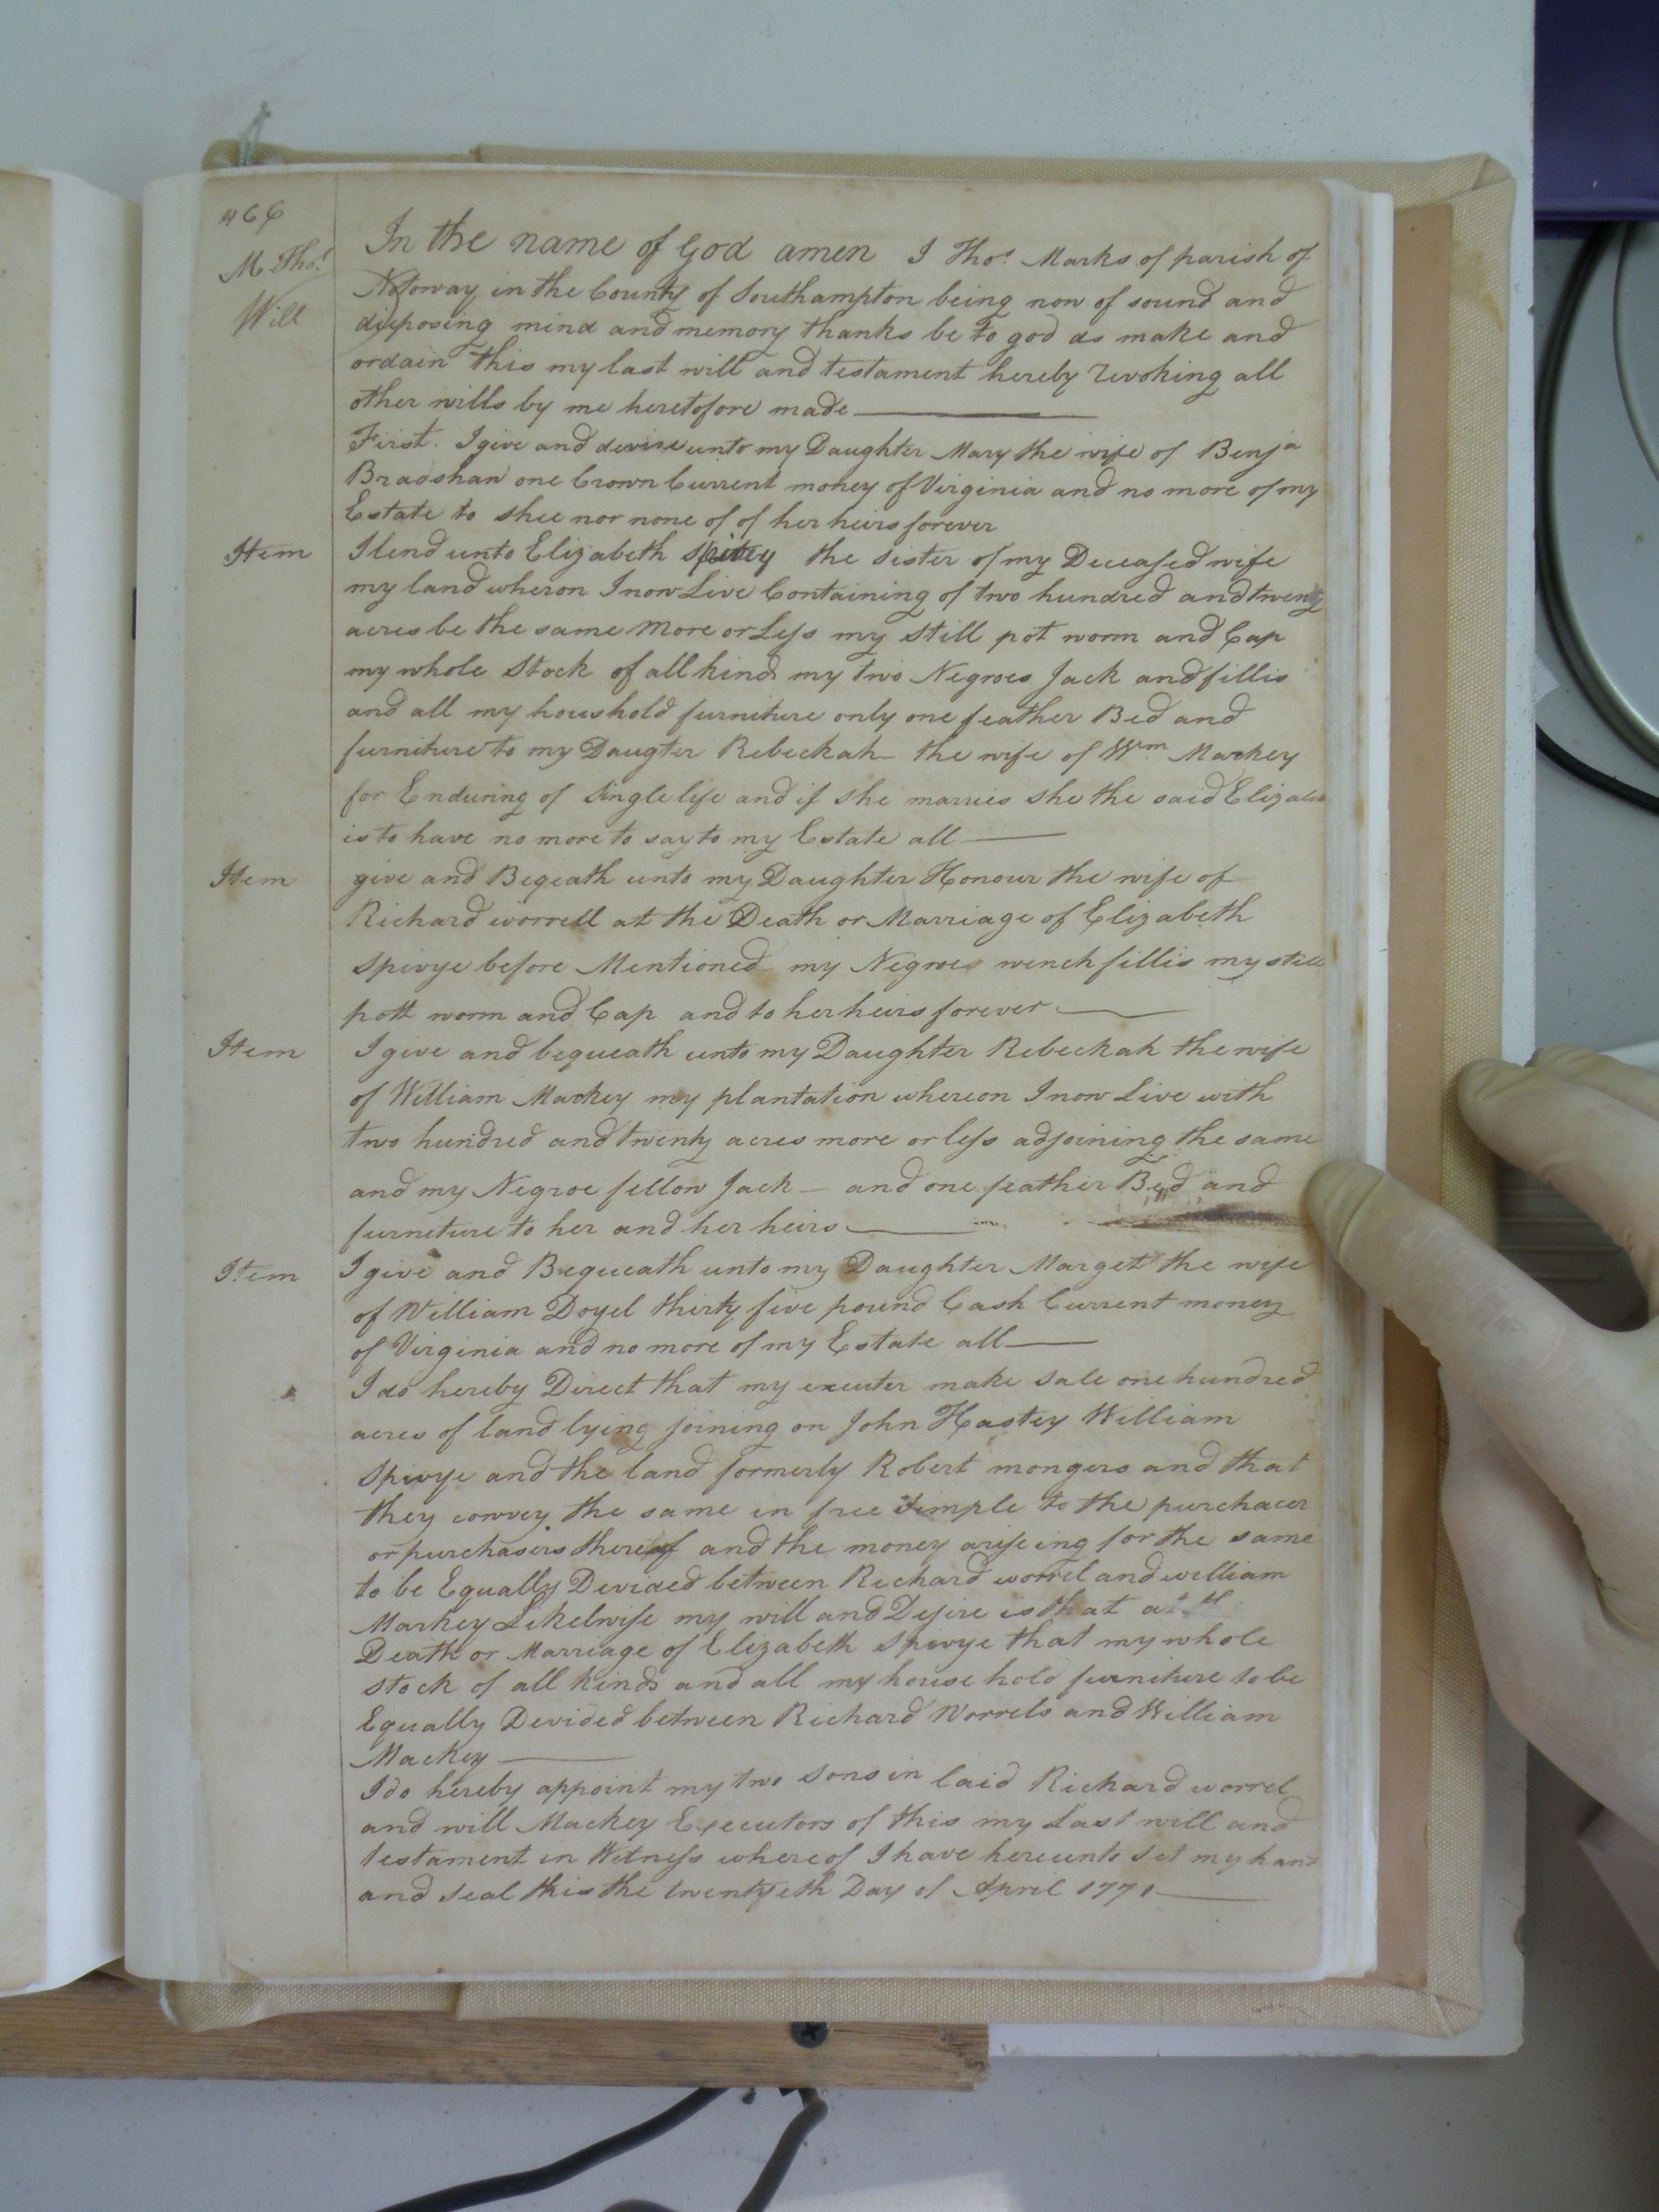 466
M. Thos.
Will
In the name of God amen I Thos. Marks of parish of
Notoway in the County of Southampton being now of sound and
disposing mind and memory thanks be to god do make and
ordain this my last will and testament hereby revoking all
other wills by me heretofore made
First. I give and devise unto my Daughter Mary the wife of Benja
Bradshaw one Crown Current money of Virginia and no more of my
Estate to shee nor none of of her heirs forever
Item I lend unto Elizabeth spivey the sister of my Deceased wife
my land wheron I now Live Containing of two hundred and twenty
acres be the same More or Less my still pot worm and Cap
my whole Stock of all kinds my two Negroes Jack and fillis
and all my houshold furniture only one feather Bed and
furniture to my Daugter Rebeckah the wife of Wm Mackey
for Enduring of Single life and if she marries she the said Elizabeth
is to have no more to say to my Estate all
Item give and Beqeath unto my Daughter Honour the wife of
Richard worrell at the Death or Marriage of Elizabeth
Spivye before Mentioned my Negroe wench fillis my still
pott worm and Cap and to her heirs forever
Item I give and bequeath unto my Daughter Rebeckah the wife
of William Mackey my plantation whereon I now Live with
two hundred and twenty acres more or less adjoining the same
and my Negroe fellow Jack and one feather Bed and
furniture to her and her heirs
Item I give and Bequeath unto my Daughter Marget the wife
of William Doyel thirty five pound Cash Current money
of Virginia and no more of my Estate all
I do hereby Direct that my exeuter make sale one hundred
acres of land lying joining on John Hastey William
Spivye and the land formerly Robert mongers and that
they convey the same in free simple to the purchacer
or purchasers thereof and the money ariseing for the same
to be Equally Devided between Richard worrel and william
Markey Likelwise my will and Desire is that at th
Death or Marriage of Elizabeth Spivye that my whole
stock of all kinds and all my house hold furniture to be
Equally Devided between Richard Worrels and William
Mackey
I do hereby appoint my two sons in laid Richard worrel
and will Mackey Executors of this my Last will and
testament in Witness whereof I have hereunto set my hand
and seal this the twentyeth Day of April 1771